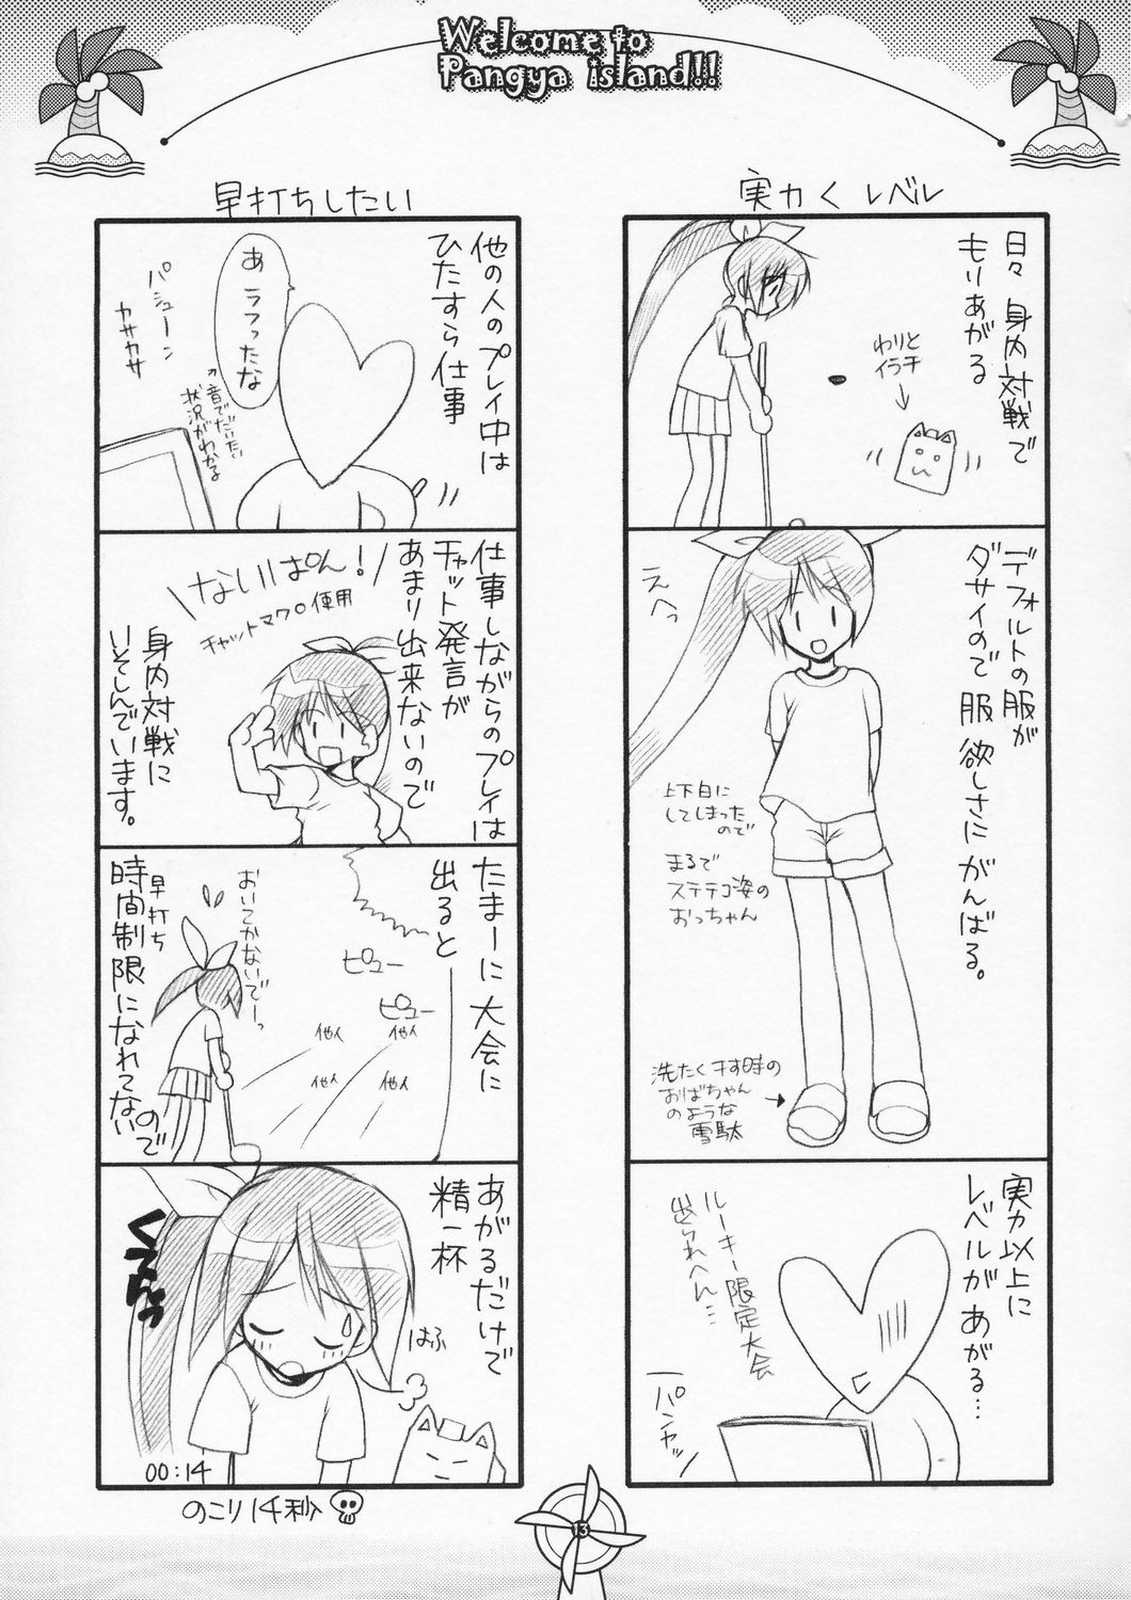 Welcome to
Pangya island!!
実力く レベル
日々 身内対戦で
もりあがる
わりと
イラチ
デフォルトの服が
ダサイので 服 欲しさに がんばる。
えへっ
上下白に
してしまった
ので
まるで
ステテコ姿の
おっちゃん
洗たく干す時の
おばちゃん
のような
雪駄
実力以上に
レベルが あがる…
ルーキー限定大会
出られへん…
パンヤッ
早打ちしたい
他の人のプレイ中は
ひたすら仕事
あ ラフったな
パシューン
カサカサ
音でだいたい
状況がわかる
仕事しながらのプレイは
チャット発言が
あまり出来ないので
ないしぱん!
チャットマクロ使用
身内対戦に
いそしんでいます。
たまーに大会に
出ると
ピュー
ピュー
他人
他人
他人
他人
おいてかないでーっ
早打ち
時間制限になれてない
ので
あがるだけで
精一杯
はふ
00:14
のこり14秒
13